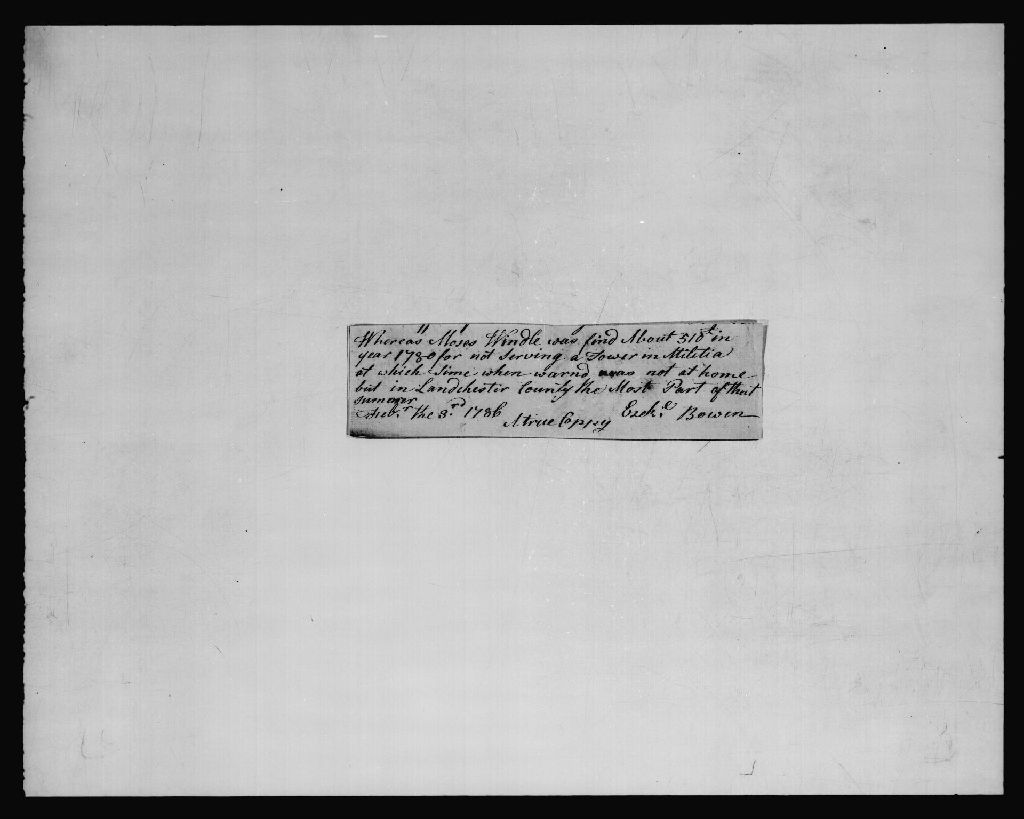 Whereas Moses Windle was find About 510 in
year 1780 for not Serving a Tower in Militia
at which time when warnd was not at home
but in Landchester County the Most Part of that
summer
Febr the 3rd 1786 Ezekl Bowen
A true Coppy